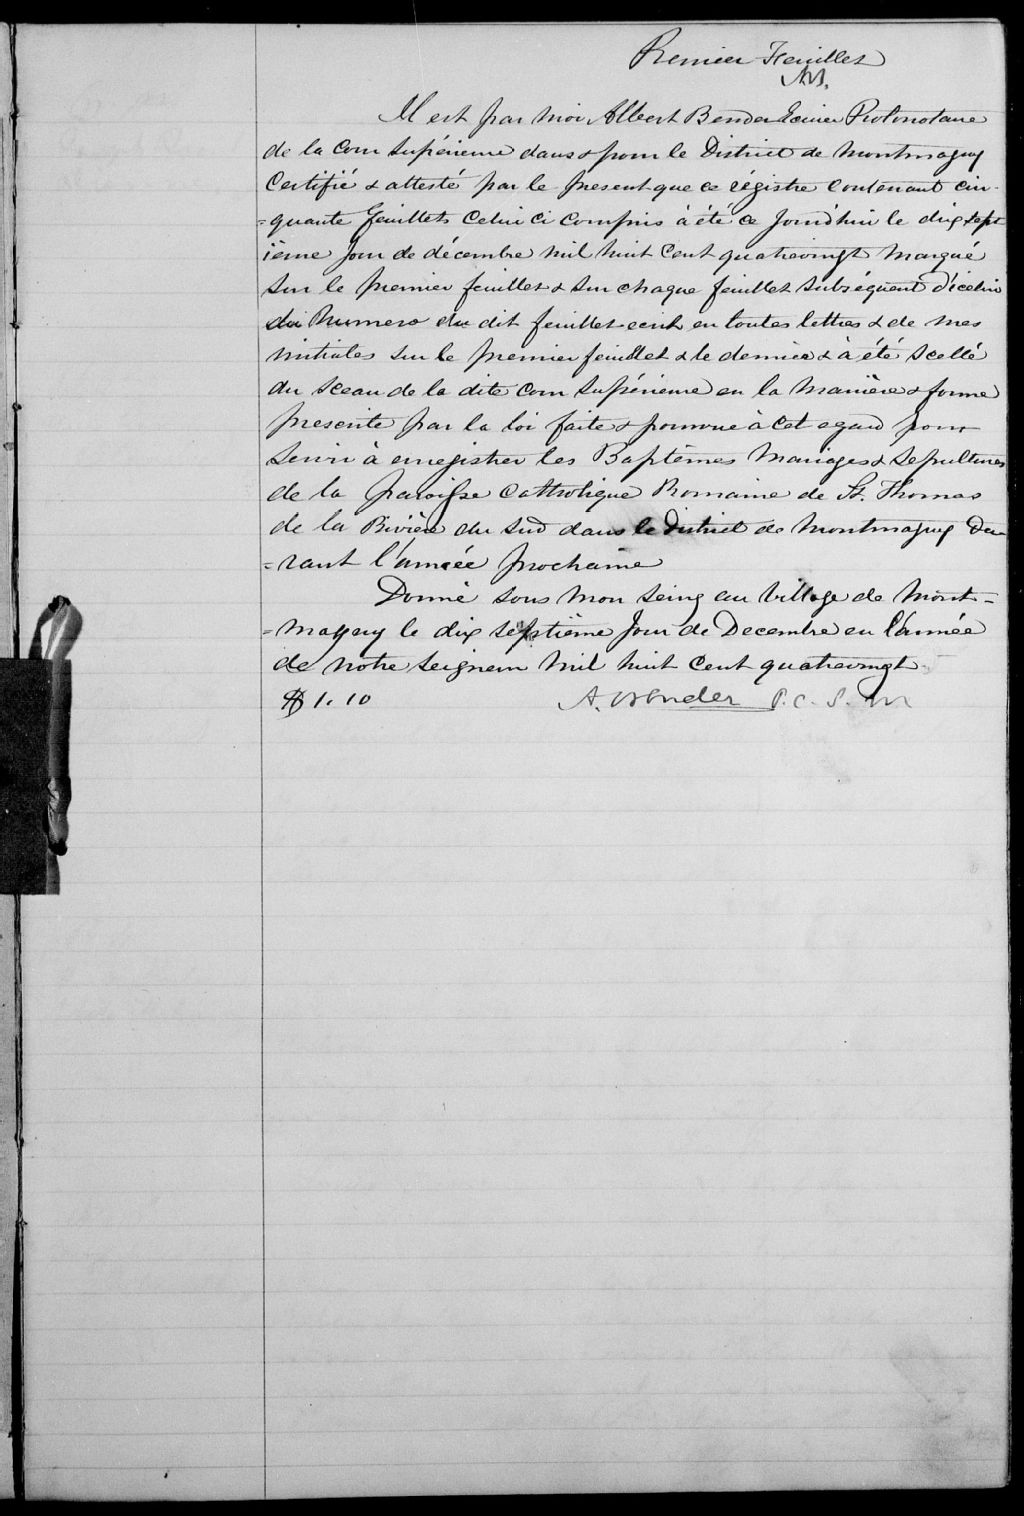 Premier Feuillet
AB.
Il est par moi Albert Bender Ecuier Protonotaire
de la Cour Supérieure dans & pour le District de Montmagny
Certifié & attesté par le present que ce régistre Contenant cin-
=quante feuillets Celui ci Compris à été ce Jourd'hui le dix sept
ième Jour de décembre mil huit Cent quatrevingt marqué
sur le premier feuillet & sur chaque feuillet subséquent d'icelui
du Numero du dit feuillet ecrit en toutes lettres & de mes
initiales sur le premier feuillet & le dernier & à été scellé
du sceau de la dite Cour Supérieure en la Manière & forme
prescrite par la loi faite & pourvue à Cet egard pour
servir à enregistrer les Baptêmes Mariages & Sepultures
de la paroisse Catholique Romaine de St. Thomas
de la Rivière du Sud dans le District de Montmagny Du-
=rant l'année prochaine
Donné sous mon seing au Village de Mont-
=magny le dix septième Jour de Decembre en l'année
de notre Seigneur Mil huit Cent quatrevingt
$ 1.10 A. Bender P. C. S. M